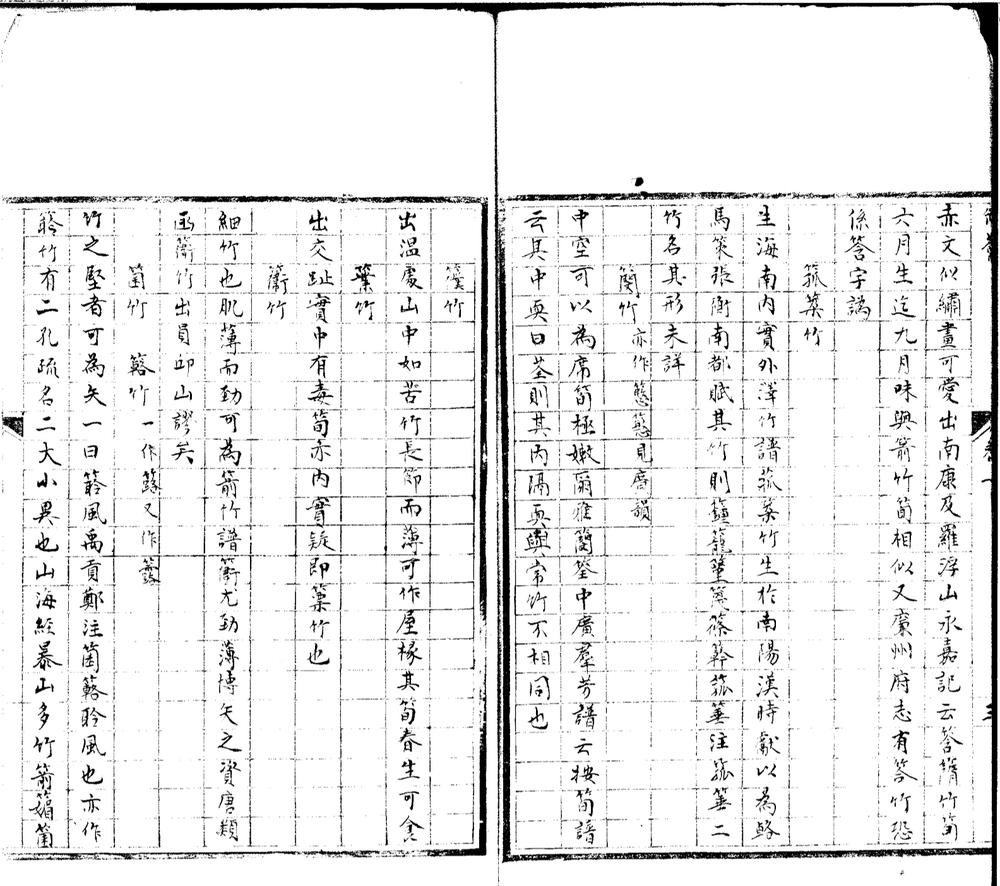 赤文似繡畫可愛出南康及羅浮山永嘉記云䈅䈝竹筍
六月生迄九月味與箭竹筍相似又廉州府志有答竹恐
係䈅字譌
箛䇲竹
生海南内實外澤竹譜箛䇲竹生於南陽漢時獻以為輅
馬策張衡南都賦其竹則籦籠䈽篾篠簳箛箠注箛箠二
竹名其形未詳
䉹竹亦作䉳䉳見唐韻
中空可以為席筍極嫩爾雅䉹筡中廣羣芳譜云按筍譜
云其中䙴曰筡則其内隔䙴與常竹不相同也
䈄竹
出温處山中如苦竹長節而薄可作屋椽其筍春生可食
䉋竹
出交趾實中有毒筍亦内實疑即篥竹也
䉛竹
細竹也肌薄而勁可為箭竹譜䉛尤勁薄博矢之資唐類
函䉛竹出員邱山謬矣
箘竹 簬竹一作簵又作簬
竹之堅者可為矢一曰䉁風禹貢鄭注箘簬聆風也亦作
聆竹有二孔疏名二大小異也山海經暴山多竹箭䉋箘